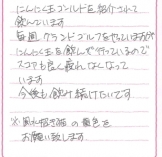 にんにく玉ゴールドを紹介されて
飲んでいます
毎週グランドゴルフをやっていますが
にんにく玉を飲んで行っているので
スコアも良く疲れなくなって
います
今後も飲み続けたいです
※風水招き猫の黄色を
お願い致します